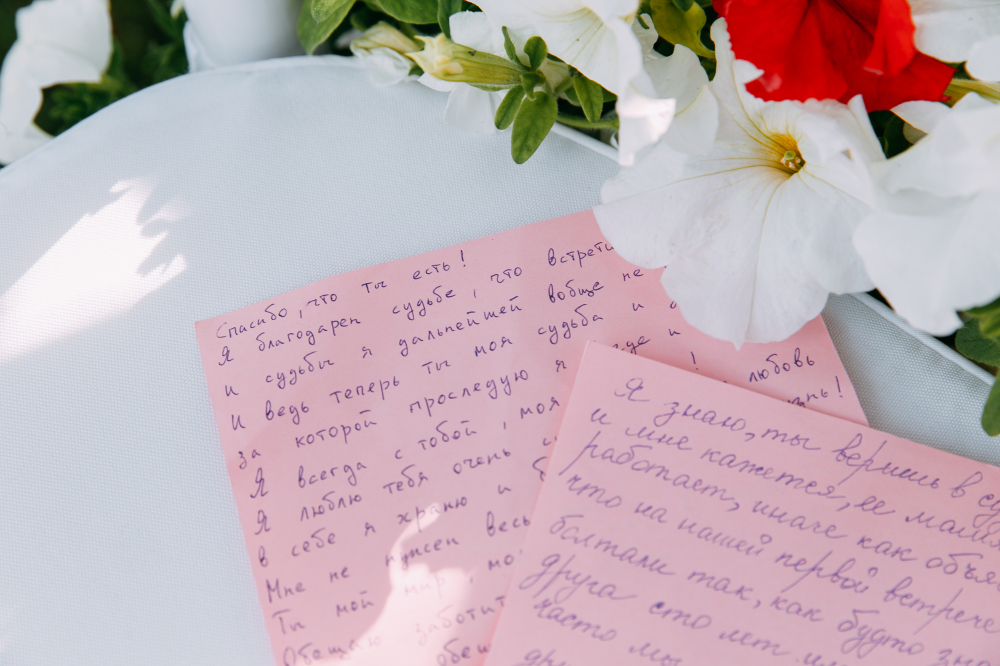 Спасибо, что ты есть!
Я благодарен судьбе, что встрети
и судьбы я дальнейшей вобще не
И ведь теперь ты моя судьба и
за которой проследую я где и
Я всегда с тобой, моя ! любовь
Я люблю тебя очень знь!
в себе я храню и
Мне не нужен весь
Ты мой мир, мо
Обещаю заботит
обещ
Я знаю, ты веришь в су
и мне кажется, ее маши
работает, иначе как объя
что на нашей первой встрече
болтали так, как будто зн
друга сто лет
часто мы
др